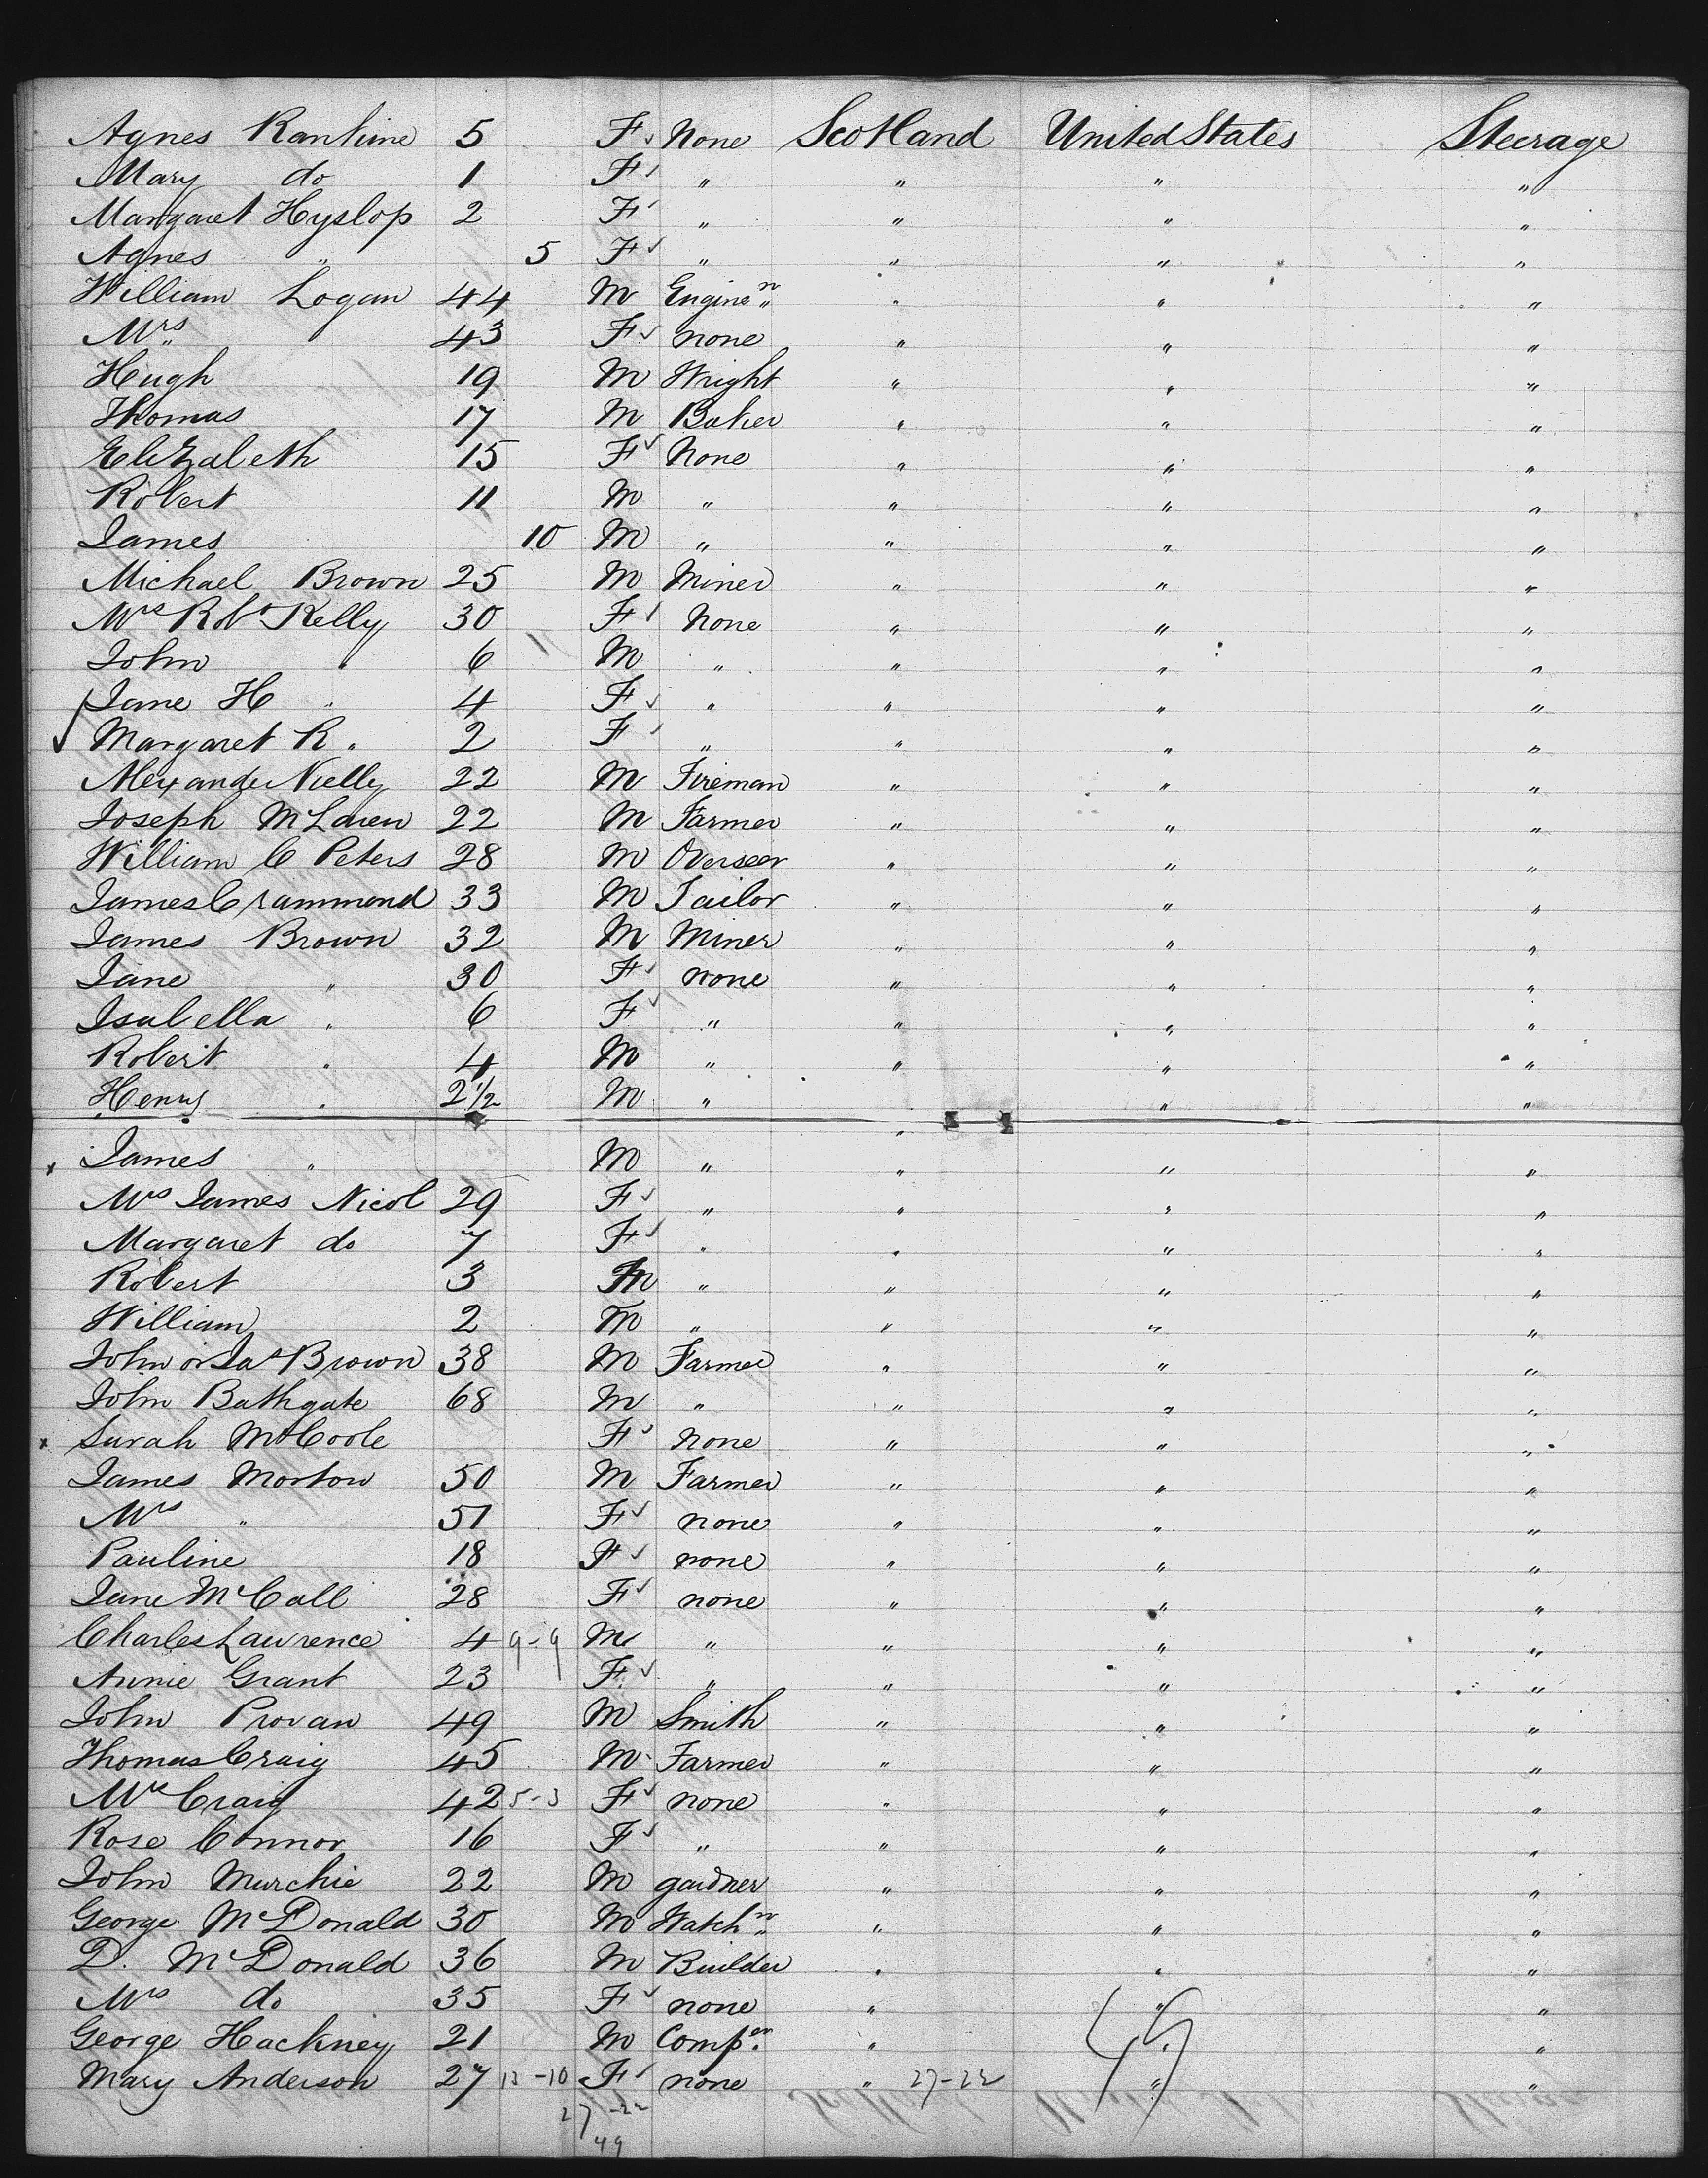 Agnes Rankine 5 F None Scotland United States Steerage
Mary do 1 F " " " "
Margaret Hyslop 2 F " " " "
Agnes " 5 F " " " "
William Logan 44 M Engine n " " "
Mrs " 43 F none " " "
Hugh 19 M Wright " " "
Thomas 17 M Baker " " "
Elizabeth 15 F None " " "
Robert 11 M " " " "
James 10 M " " " "
Michael Brown 25 M Miner " " "
Mrs Robt Kelly 30 F None " " "
John " 6 M " " " "
Jane H " 4 F " " " "
Margaret R " 2 F " " " "
Alexander Nielly 22 M Fireman " " "
Joseph McLaren 22 M Farmer " " "
William C Peters 28 M Overseer " " "
James Crammond 33 M Tailor " " "
James Brown 32 M Miner " " "
Jane " 30 F none " " "
Isabella " 6 F " " " "
Robert " 4 M " " " "
Henry " 2 1/2 M " " " "
x James " M " " " "
Mrs James Nicol 29 F " " " "
Margaret do 7 F " " " "
Robert 3 M " " " "
William 2 M " " " "
John or Jas Brown 38 M Farmer " " "
John Bathgate 68 M " " " "
x Sarah McCoole F None " " "
James Morton 50 M Farmer " " "
Mrs " 51 F none " " "
Pauline 18 F none " " "
Jane McCall 28 F none " " "
Charles Lawrence 4 9-9 M " " " "
Annie Grant 23 F " " " "
John Provan 49 M Smith " " "
Thomas Craig 45 M Farmer " " "
Mrs Craig 42 5-3 F none " " "
Rose Connor 16 F " " " "
John Murchie 22 M gardner " " "
George McDonald 30 M Watch n " " "
D. McDonald 36 M Builder " " "
Mrs do 35 F none " " "
George Hackney 21 M Comp.er " " "
Mary Anderson 27 13-10 F none " 27-22 " "
27-22
49
49